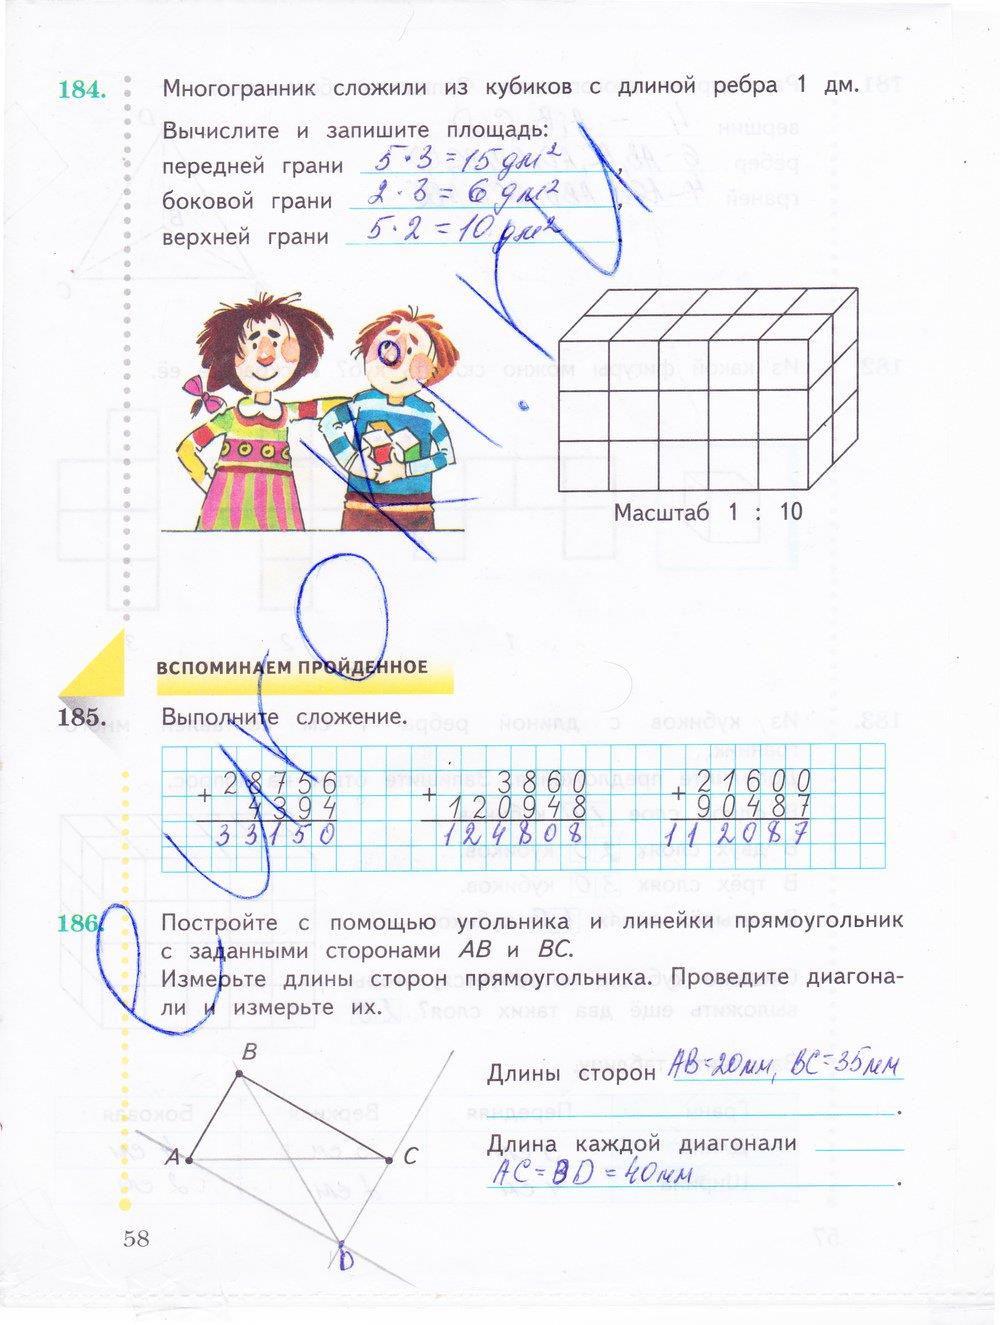 184.
Многогранник сложили из кубиков с длиной ребра 1 дм.
Вычислите и запишите площадь:
передней грани 5·3=15дм²,
боковой грани 2·3=6дм²,
верхней грани 5·2=10дм².
Масштаб 1 : 10
ВСПОМИНАЕМ ПРОЙДЕННОЕ
185. Выполните сложение.
+ 28756
4394
33150
+ 3860
120948
124808
+ 21600
90487
112087
186. Постройте с помощью угольника и линейки прямоугольник
с заданными сторонами AB и BC.
Измерьте длины сторон прямоугольника. Проведите диагона-
ли и измерьте их.
B
A
C
D
Длины сторон AB=20мм, BC=35мм
.
Длина каждой диагонали
AC=BD=40мм.
58